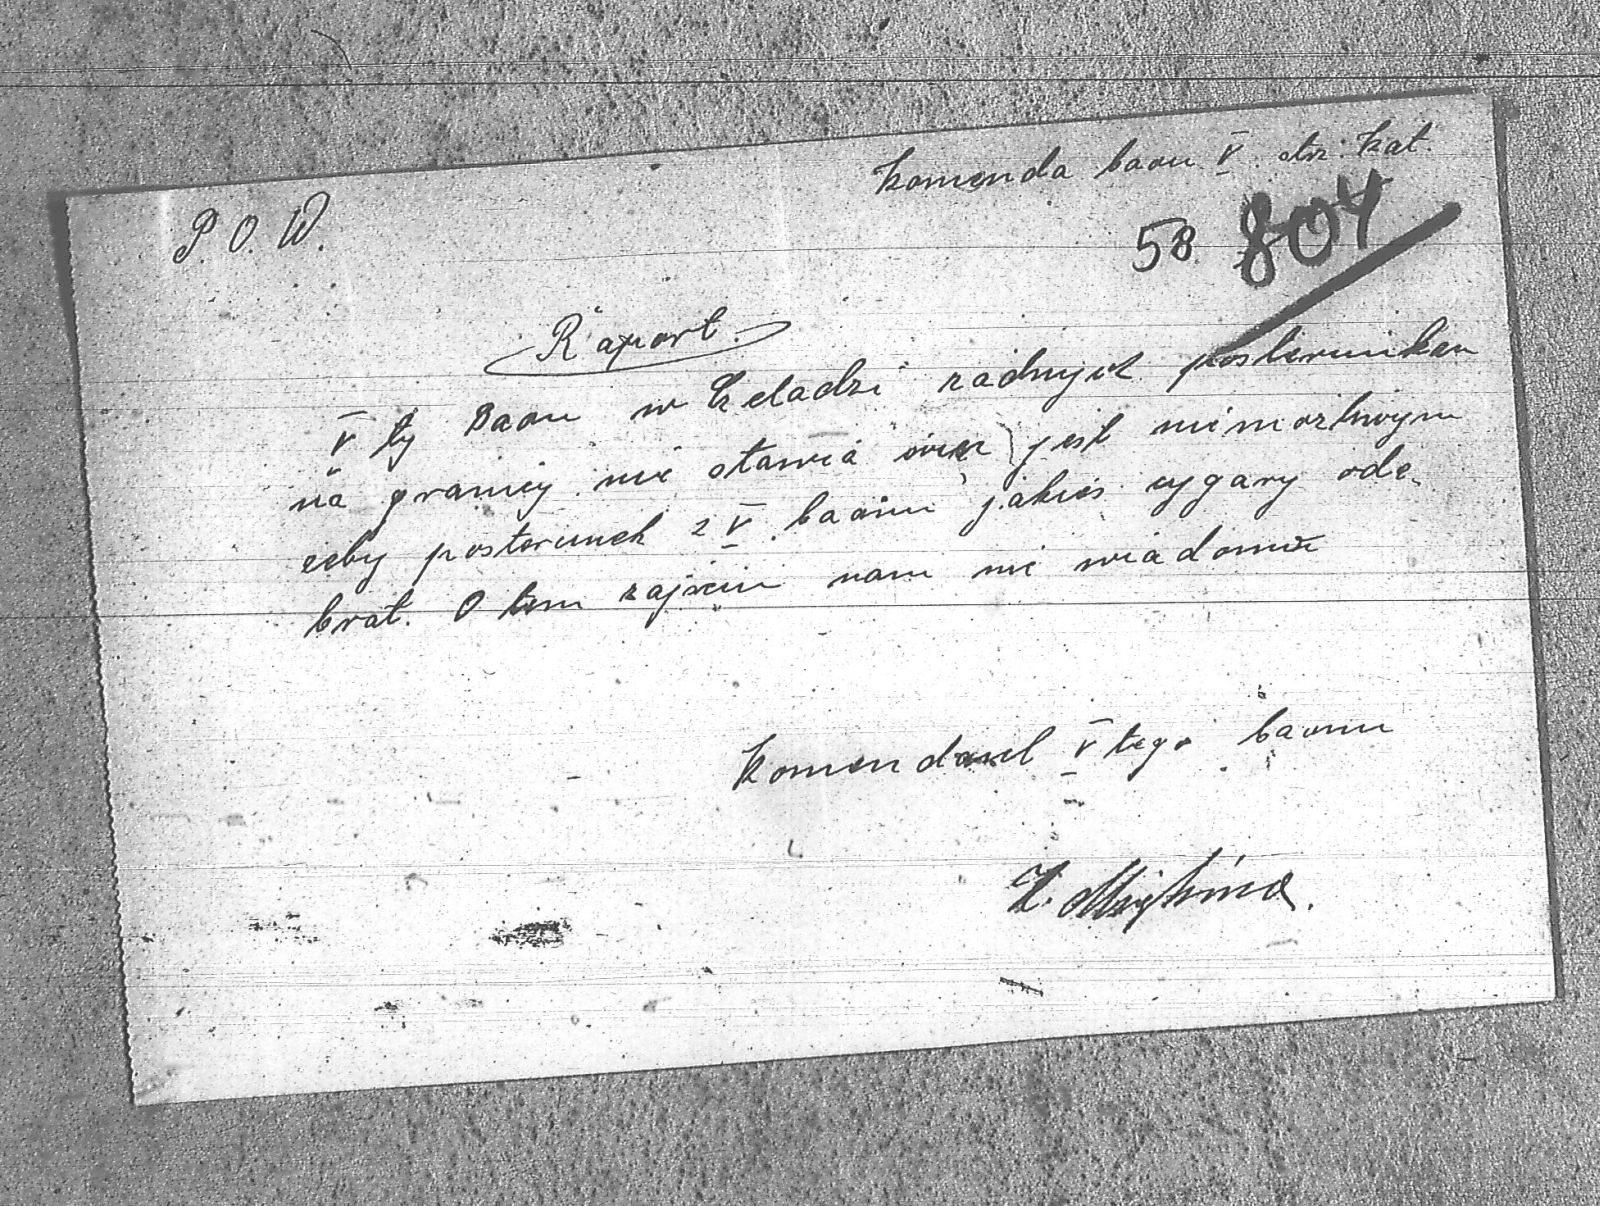 Komenda baonu V. str: Kat.
P. O. W.
58 804
Raport.
V ty Baon w Czeladzi żadnych posterunków
na granicy nie stawia więc jest niemożliwym
żeby posterunek z V. baonu jakieś cygary ode-
brał. O tem zajściu nam nie wiadomo
Komendant V tego baonu